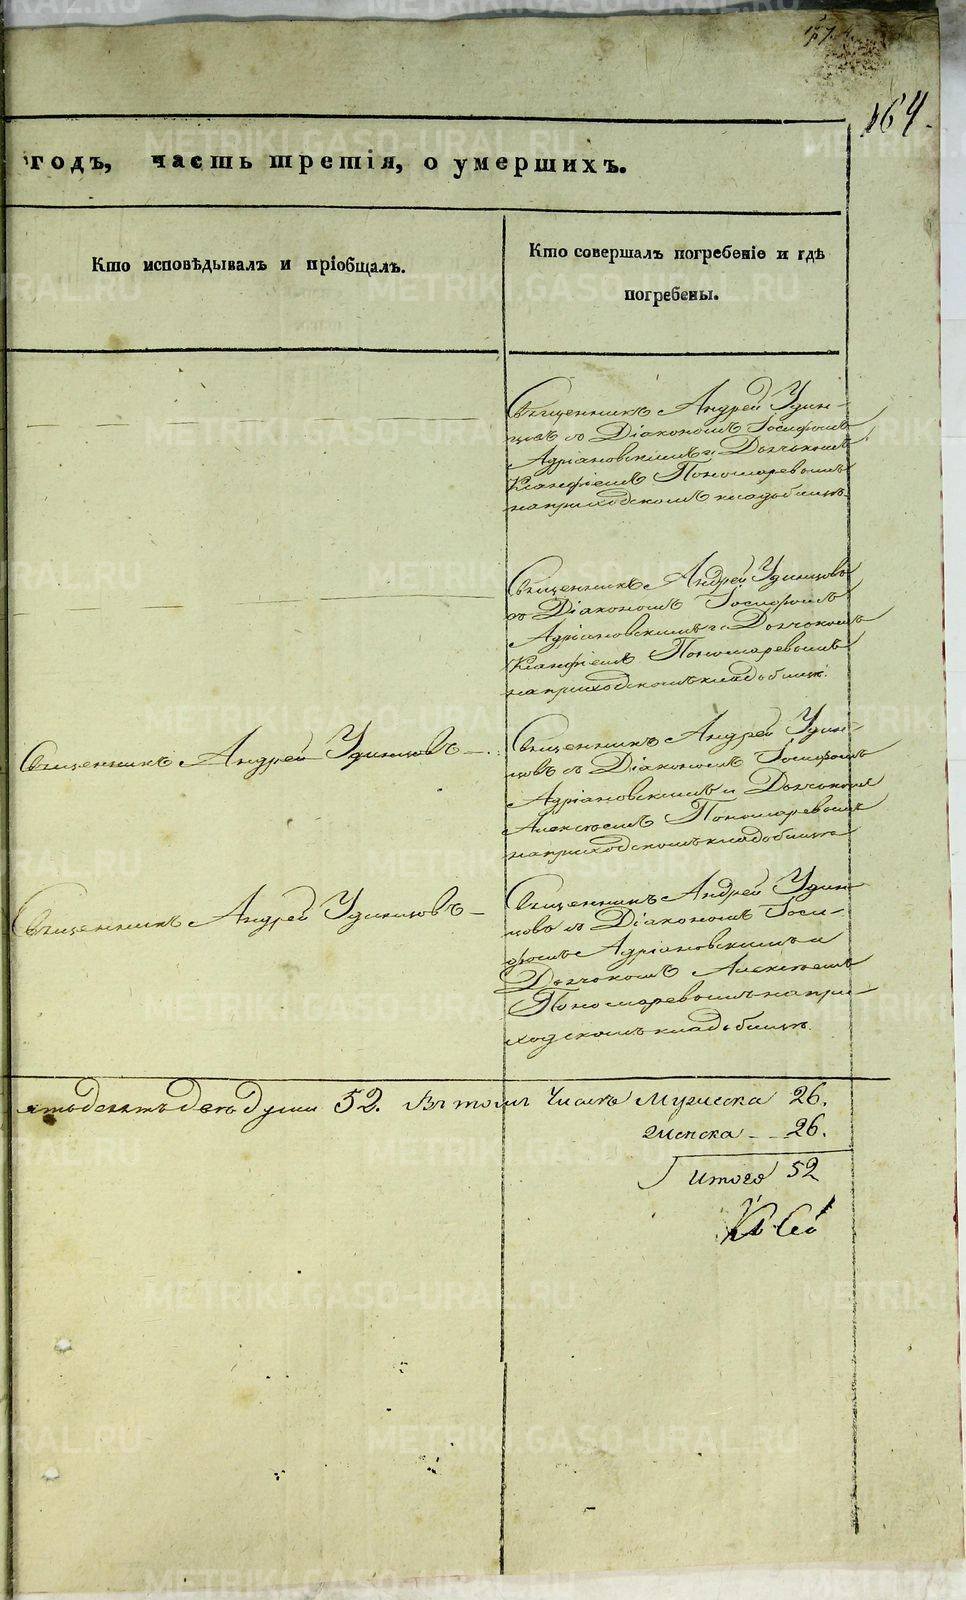 164.
годъ, часть третія, о умершихъ.
Кто исповѣдывалъ и пріобщалъ.
Кто совершалъ погребеніе и гдѣ
погребены.
Священникъ Андрей Удин-
цовъ съ Діакономъ Іосифомъ
Адріановскимъ и Дьячкомъ
Ксанфіемъ Пономаревымъ
на приходскомъ кладбищѣ.
Священникъ Андрей Удинцовъ
съ Діакономъ Іосифомъ
Адріановскимъ и Дьячкомъ
Ксанфіемъ Пономаревымъ
на приходскомъ кладбищѣ.
Священникъ Андрей Удинцовъ
Священникъ Андрей Удин-
цовъ съ Діакономъ Іосифомъ
Адріановскимъ и Дьячкомъ
Алексѣемъ Пономаревымъ
на приходскомъ кладбищѣ
Священникъ Андрей Удинцовъ
Священникъ Андрей Удин-
цовъ съ Діакономъ Іоси-
фомъ Адріановскимъ и
Дьячкомъ Алексѣемъ
Пономаревымъ на при-
ходскомъ кладбищѣ.
душъ 52. Въ томъ числѣ Мужеска 26.
Женска 26.
Итого 52
METRIKI.GASO-URAL.RU